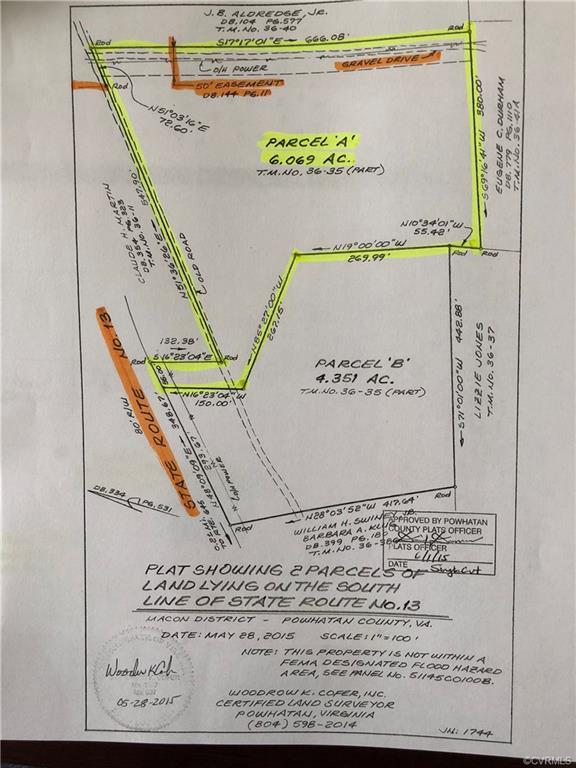 J. B. ALDREDGE, JR.
DB. 104 PG. 577
T.M. NO. 36-40
Rod
S17°17'01"E 666.08'
Rod
O/H POWER
GRAVEL DRIVE
50' EASEMENT
DB. 144 PG. 11
Rod
N51°03'16"E
72.60'
PARCEL 'A'
6.069 AC.
T.M. NO. 36-35 (PART)
S69°16'41"W 380.00'
EUGENE C. DURHAM
DB. 779 PG. 1110
T.M. NO. 36-41A
CLAUDE H. MARTIN
T.M. NO. 36-11
N51°36'26"E 547.90'
OLD ROAD
N10°34'01"W
55.42'
N19°00'00"W
269.99'
Rod
Rod
N86°27'00"W
267.15'
132.38'
Rod
S16°23'04"E
Rod
N16°23'04"W
150.00'
PARCEL 'B'
4.351 AC.
T.M. NO. 36-35 (PART)
S71°01'00"W 442.88'
LIZZIE JONES
T.M. NO. 36-37
80' R/W
STATE ROUTE NO. 13
348.67'
DB. 334
PG. 531
N28°03'52"W 417.64'
Rod
Rod
WILLIAM H. SWINEY, JR.
BARBARA A.
DB. 399 PG.
T.M. NO.
APPROVED BY POWHATAN
COUNTY PLATS OFFICER
PLATS OFFICER
DATE
Single Cut
PLAT SHOWING 2 PARCELS OF
LAND LYING ON THE SOUTH
LINE OF STATE ROUTE NO. 13
MACON DISTRICT - POWHATAN COUNTY, VA.
DATE: MAY 28, 2015 SCALE: 1"=100'
NOTE: THIS PROPERTY IS NOT WITHIN A
FEMA DESIGNATED FLOOD HAZARD
AREA, SEE PANEL NO. 51145C0100B.
05-28-2015
WOODROW K. COFER, INC.
CERTIFIED LAND SURVEYOR
POWHATAN, VIRGINIA
(804) 598-2014
JN: 1744
©CVRMLS